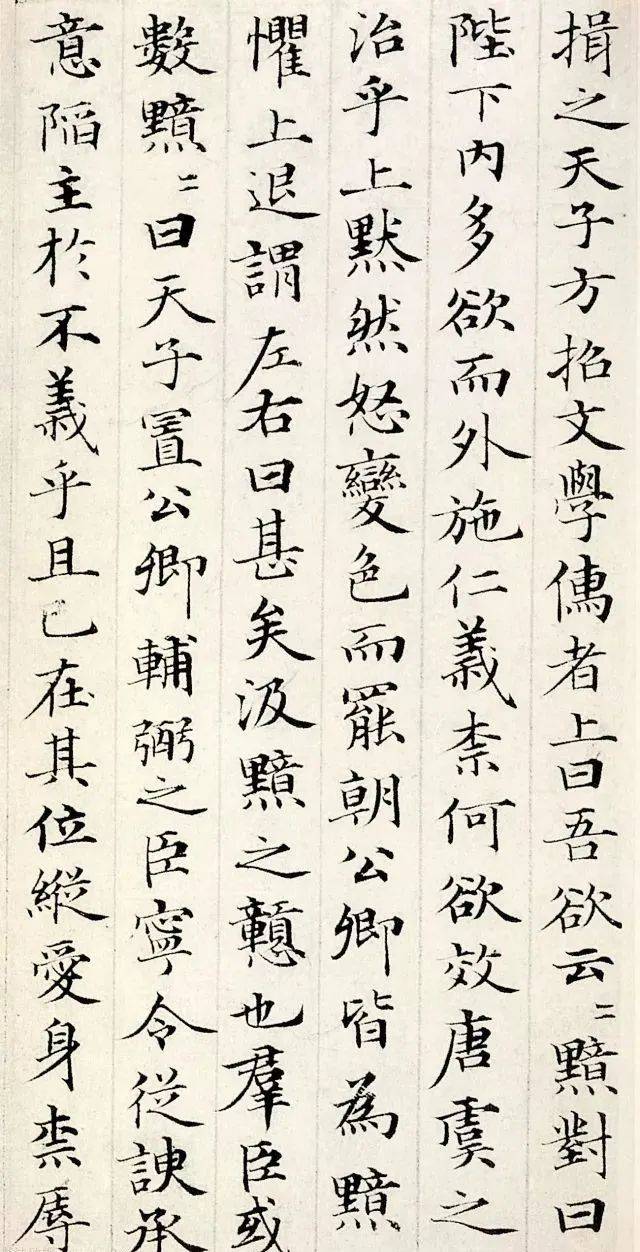 揖之天子方招文學儒者上曰吾欲云〻黯對曰
陛下內多欲而外施仁義柰何欲效唐虞之
治乎上默然怒變色而罷朝公卿皆為黯
懼上退謂左右曰甚矣汲黯之戇也羣臣或
數黯〻曰天子置公卿輔弼之臣寧令從諛承
意陷主於不義乎且已在其位縱愛身柰辱